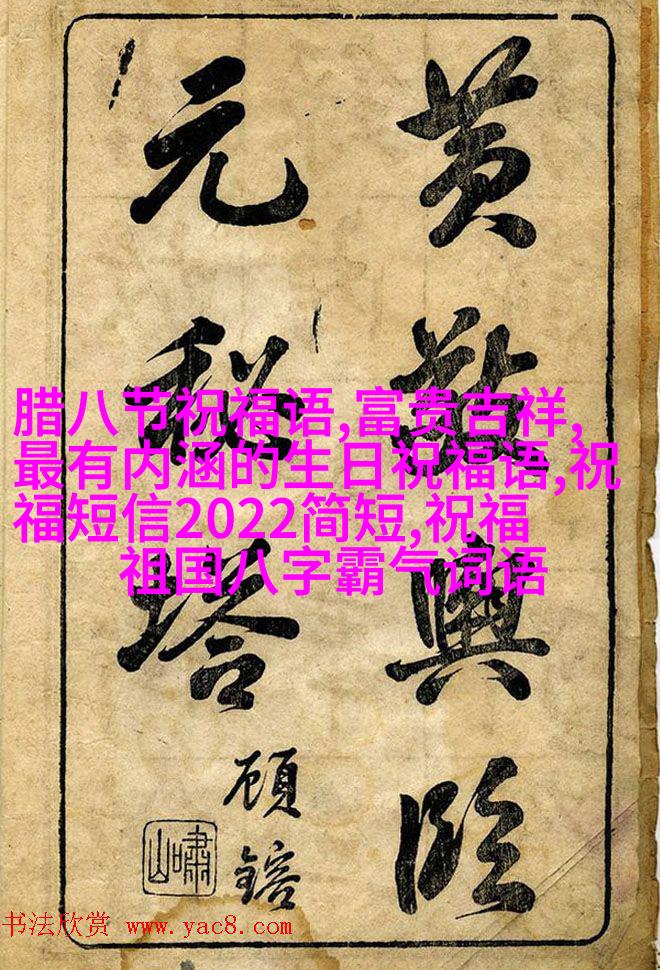 黄敬舆临
元秘塔
顾鎔
啸山
腊八节祝福语,富贵吉祥,
最有内涵的生日祝福语,祝
福短信2022简短,祝福
祖国八字霸气词语
书法欣赏 www.yac8.com